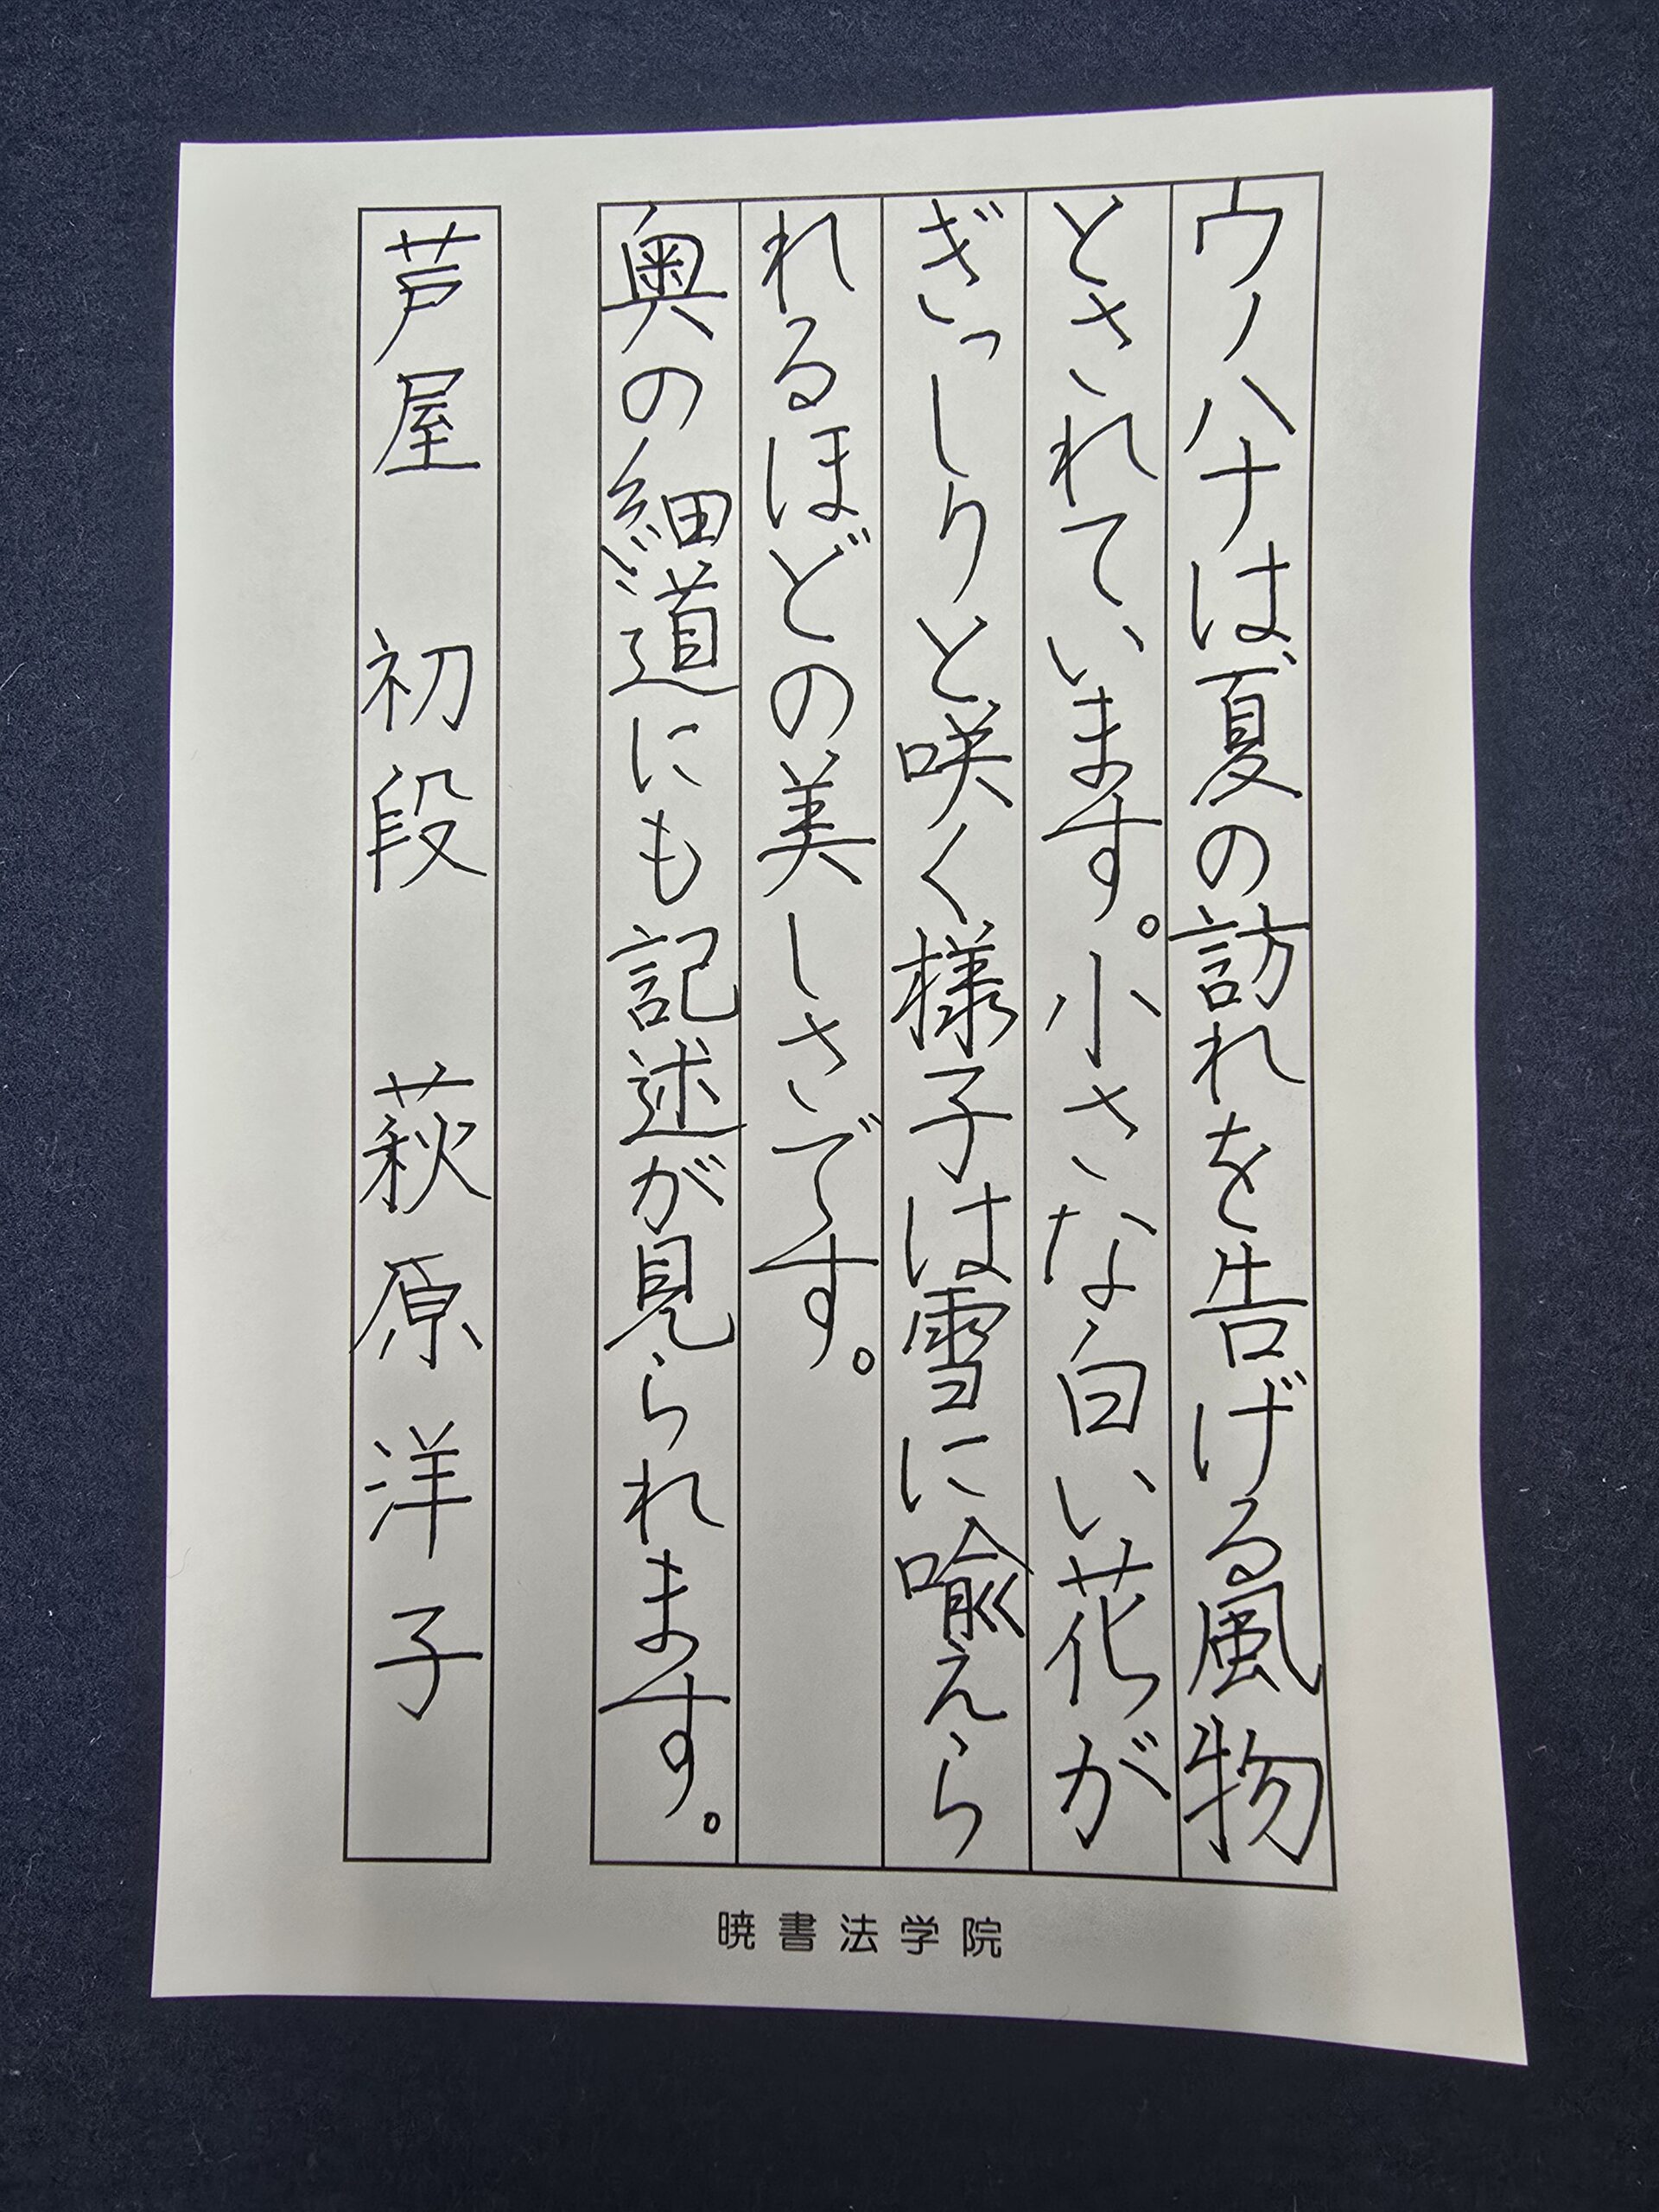 ウノハナは夏の訪れを告げる風物
とされています。小さな白い花が
ぎっしりと咲く様子は雪に喩えら
れるほどの美しさです。
奥の細道にも記述が見られます。
芦屋 初段 萩原洋子
暁書法学院